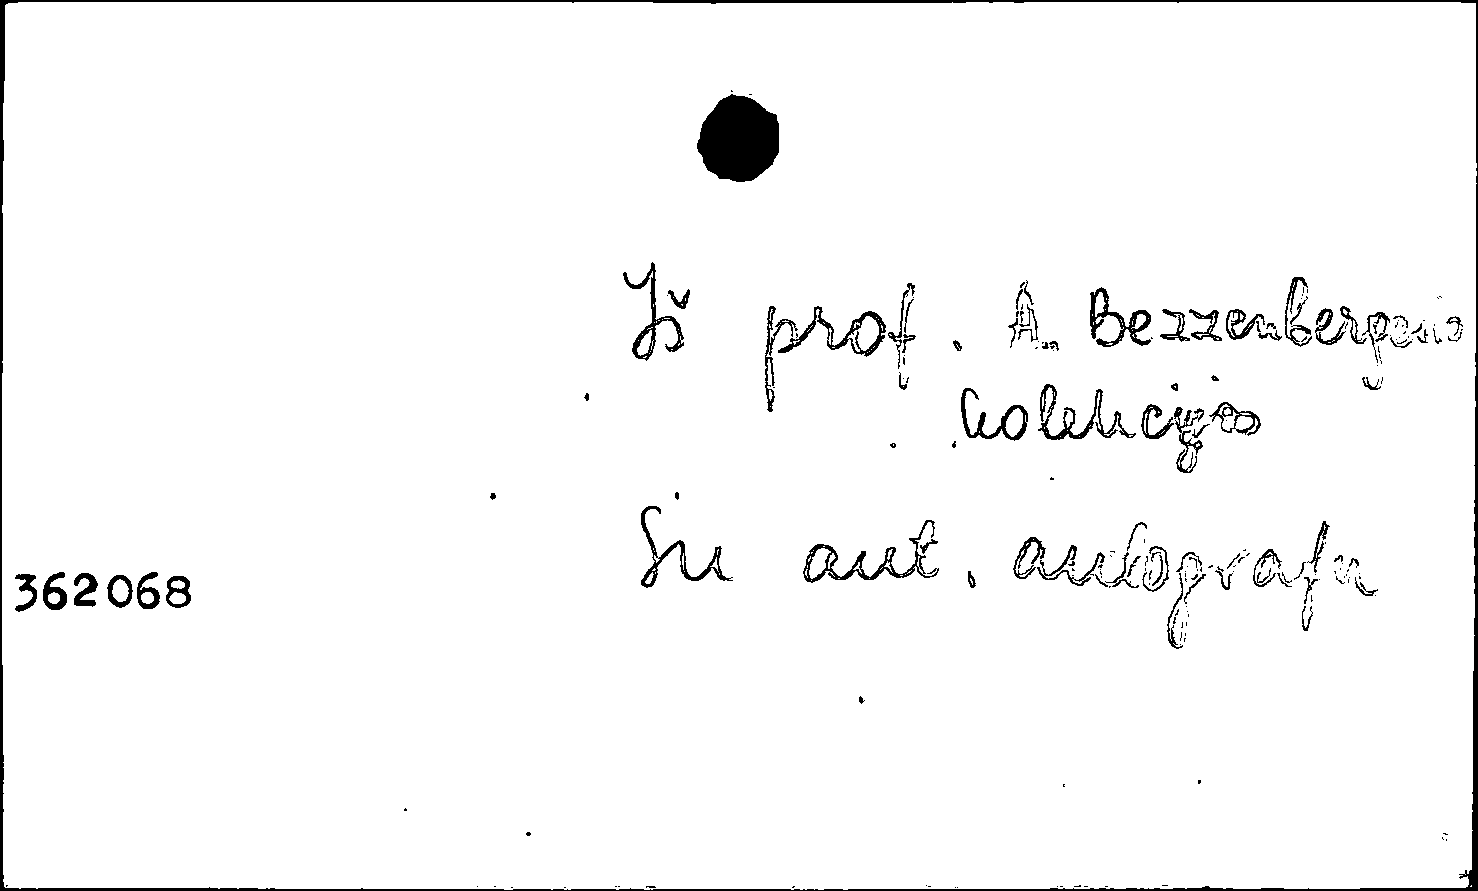 Iš prof. A. Bezzenbergerio
kolekcijos
Su aut. autografu
362068